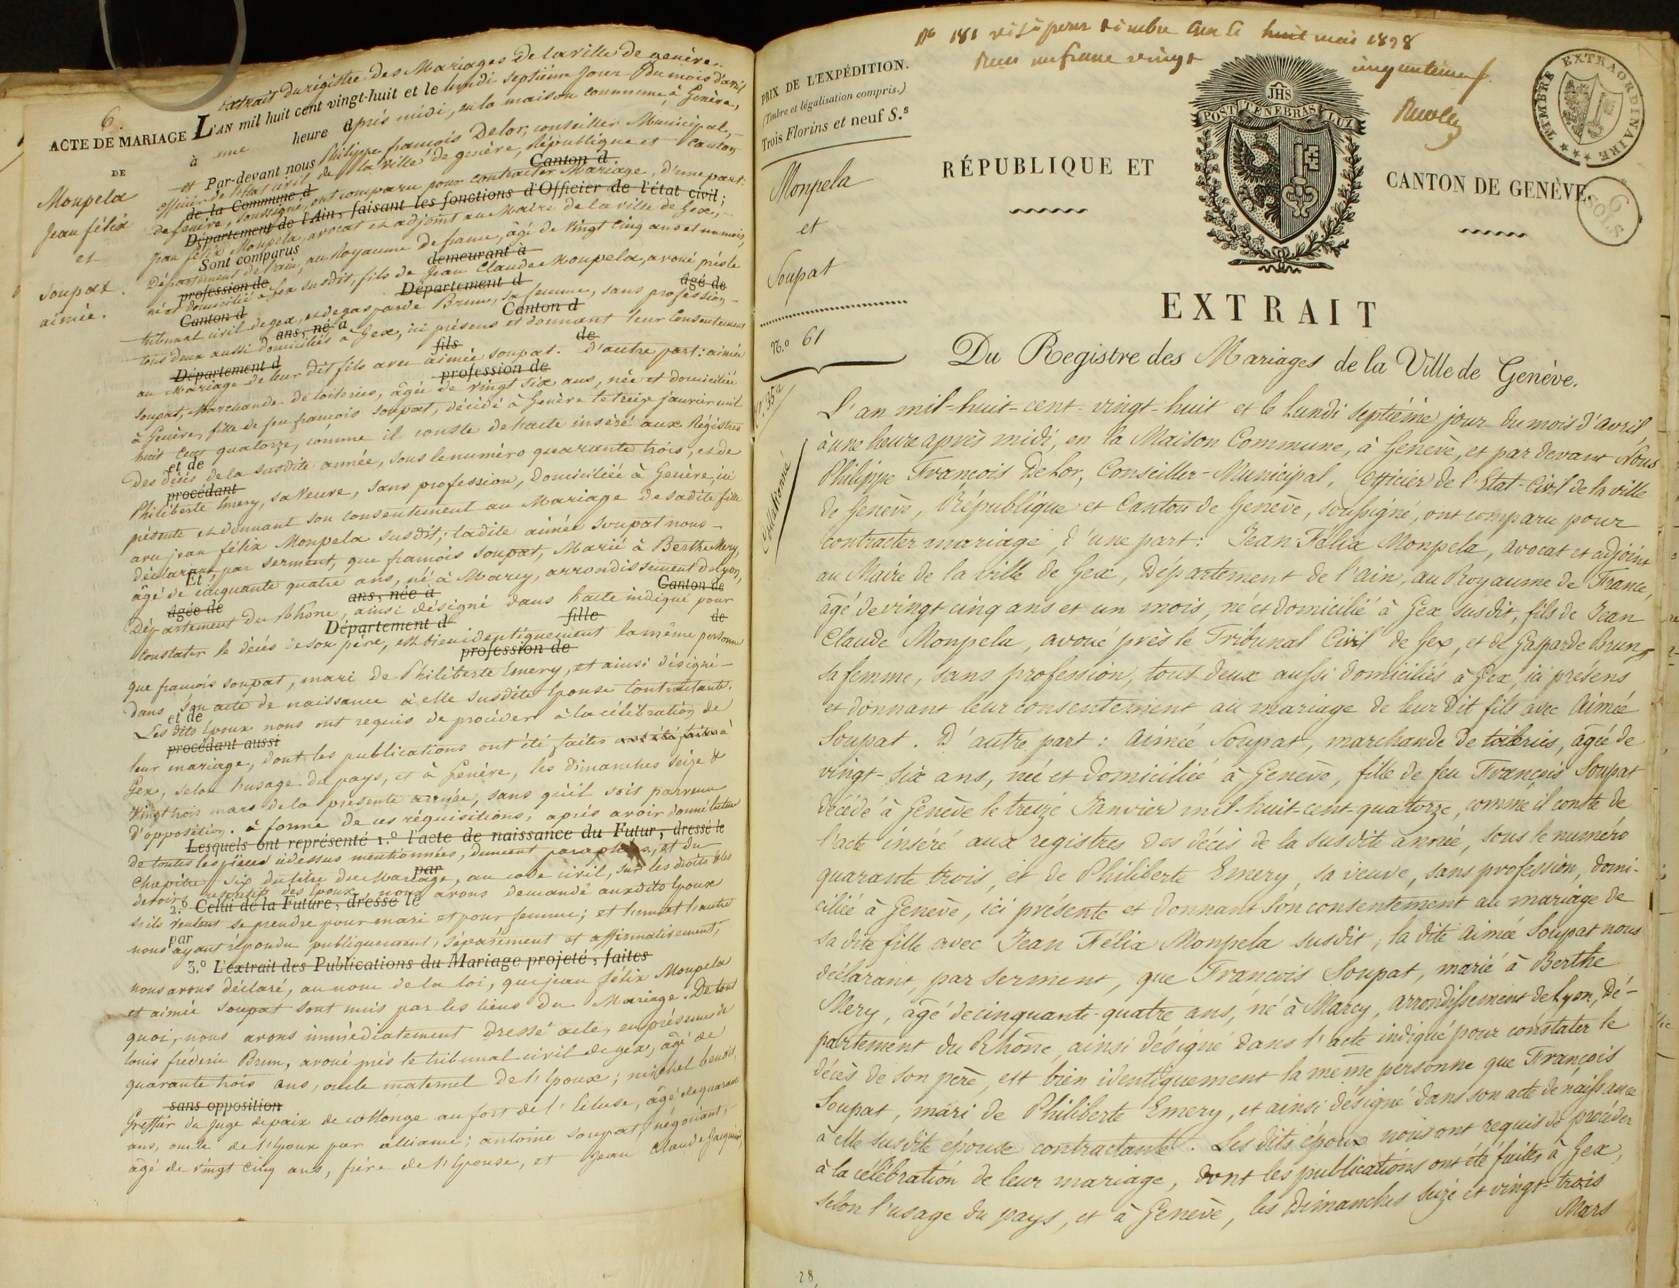 6.
Extrait du régistre des Mariages de la ville de genève.
ACTE DE MARIAGE
DE
Monpela
Jean félix
et
Soupat.
aimée.
L'AN mil huit cent vingt-huit et le lundi septième jour du mois d'avril
à une heure après midi, en la maison commune, à Genève,
et Par-devant nous Philippe françois Delor, conseiller Municipal,
officier de l'état civil de la ville de genève, république et canton
Canton d
de la Commune d
de genève, soussigné, ont comparu pour contracter Mariage, d'une part:
Département de l'Ain, faisant les fonctions d'Officier de l'état civil;
jean félix Monpela, avocat et adjoint au Maire de la ville de Gex,
Sont comparus
Département de l'ain, au Royaume de france, âgé de vingt cinq ans et un mois,
demeurant à
profession de
né et domicilié à Gex susdit, fils de Jean Claude Monpela, avoué près le
âgé de
Canton d
Département d
tribunal civil de gex, et de gasparde Brun, sa femme, sans profession
ans, né à
Canton d
tous deux aussi domiciliés à Gex, ici présens et donnant leur consentement
fils
de
Département d
au Mariage de leur dit fils avec aimée soupat. d'autre part: aimée
profession de
soupat, Marchande de toileries, âgée de vingt six ans, née et domiciliée
à Genève, fille de feu françois soupat, décédé à Genève le treize janvier mil
huit cent quatorze, comme il conste de l'acte inséré aux Régistres
et de
des décès de la susdite année, sous le numéro quarante trois, et de
procédant
Philiberte Emery, sa veuve, sans profession, domiciliée à Genève, ici
présente et donnant son consentement au Mariage de sadite fille
avec jean félix Monpela susdit; ladite aimée soupat nous
déclarant, par serment, que françois soupat, Marié à Berthe Mery,
Et
âgé de cinquante quatre ans, né à Marcy, arrondissement de Lyon,
âgée de
ans, née à
Canton de
Département du Rhône, ainsi désigné dans l'acte indiqué pour
Département d
fille
de
constater le décès de son père, est bien identiquement la même personne
profession de
que françois soupat, mari de Philiberte Emery, et ainsi désigné
dans son acte de naissance à elle susdite épouse contractante.
et de
Les dits époux nous ont requis de procéder à la célébration de
procédant aussi
leur mariage, dont les publications ont été faites à
Gex, selon l'usage du pays, et à Genève, les dimanches seize &
vingt trois mars de la présente année, sans qu'il soit parvenu
d'opposition. à forme de ces réquisitions, après avoir donné lecture
Lesquels ont représenté 1.º l'acte de naissance du Futur, dressé le
de toutes les pièces cidessus mentionnées, dument paraphées, et du
par
Chapitre six du titre du Mariage, au code civil, sur les droits & les
devoirs respectifs des époux, nous avons demandé auxdits époux
2.º Celui de la Future, dressé le
s'ils veulent se prendre pour mari et pour femme; et l'un et l'autre
par
nous ayant répondu publiquement, séparément et affirmativement,
3.º L'extrait des Publications du Mariage projeté, faites
nous avons déclaré, au nom de la loi, que jean félix Monpela
et aimée soupat sont unis par les liens du Mariage. De tout
quoi, nous avons immédiatement dressé acte, en présence de
louis frédéric Brun, avoué près le tribunal civil de gex, âgé de
quarante trois ans, oncle maternel de l'époux; michel benoit,
sans opposition
Greffier du Juge de paix de collonge au fort de l'écluse, âgé de quarante
ans, oncle de l'époux par alliance; antoine soupat, négociant,
âgé de vingt cinq ans, frère de l'épouse, et Jean Claude Jaquier,
Nº 181 visé pour timbre Gex le huit mai 1828
Reçu un franc vingt cinq centimes.
PRIX DE L'EXPÉDITION.
(Timbre et légalisation compris.)
Trois Florins et neuf S.s
Monpela
et
Soupat
N.º 61
Collationné
POST TENEBRAS LUX
JHS
TIMBRE EXTRAORDINAIRE
6 SOLS
RÉPUBLIQUE ET
CANTON DE GENÈVE.
EXTRAIT
Du Registre des Mariages de la Ville de Genève.
L'an mil-huit-cent-vingt-huit et le Lundi septième jour du mois d'avril
à une heure après midi, en la Maison Commune, à Genève, et par devant Nous
Philippe François Delor, Conseiller-Municipal, officier de l'Etat-Civil de la ville
de Genève, République et Canton de Genève, soussigné, ont comparu pour
contracter mariage, d'une part: Jean Félix Monpela, avocat et adjoint
au Maire de la ville de Gex, Département de l'ain, au Royaume de France,
âgé de vingt cinq ans et un mois, né et domicilié à Gex susdit, fils de Jean
Claude Monpela, avoué près le Tribunal Civil de Gex, et de Gasparde Brun
sa femme, sans profession, tous deux aussi domiciliés à Gex, ici présens
et donnant leur consentement au mariage de leur dit fils avec Aimée
Soupat. D'autre part: Aimée Soupat, marchande de toileries, âgée de
vingt-six ans, née et domiciliée à Genève, fille de feu François Soupat
décédé à Genève le treize Janvier mil-huit-cent-quatorze, comme il conste de
l'acte inséré aux registres des décès de la susdite année, sous le numéro
quarante trois, et de Philiberte Emery, sa veuve, sans profession, domi-
ciliée à Genève, ici présente et donnant son consentement au mariage de
sa dite fille avec Jean Félix Monpela susdit, la dite Aimée Soupat nous
déclarant, par serment, que François Soupat, marié à Berthe
Mery, âgé de cinquante-quatre ans, né à Marcy, arrondissement de Lyon, Dé-
partement du Rhône, ainsi désigné dans l'acte indiqué pour constater le
décès de son père, est bien identiquement la même personne que François
Soupat, mari de Philiberte Emery, et ainsi désigné dans son acte de naissance
à elle susdite épouse contractante. Les dits époux nous ont requis de procéder
à la célébration de leur mariage, dont les publications ont été faites à Gex,
selon l'usage du pays, et à Genève, les Dimanches seize et vingt-trois
Mars
28